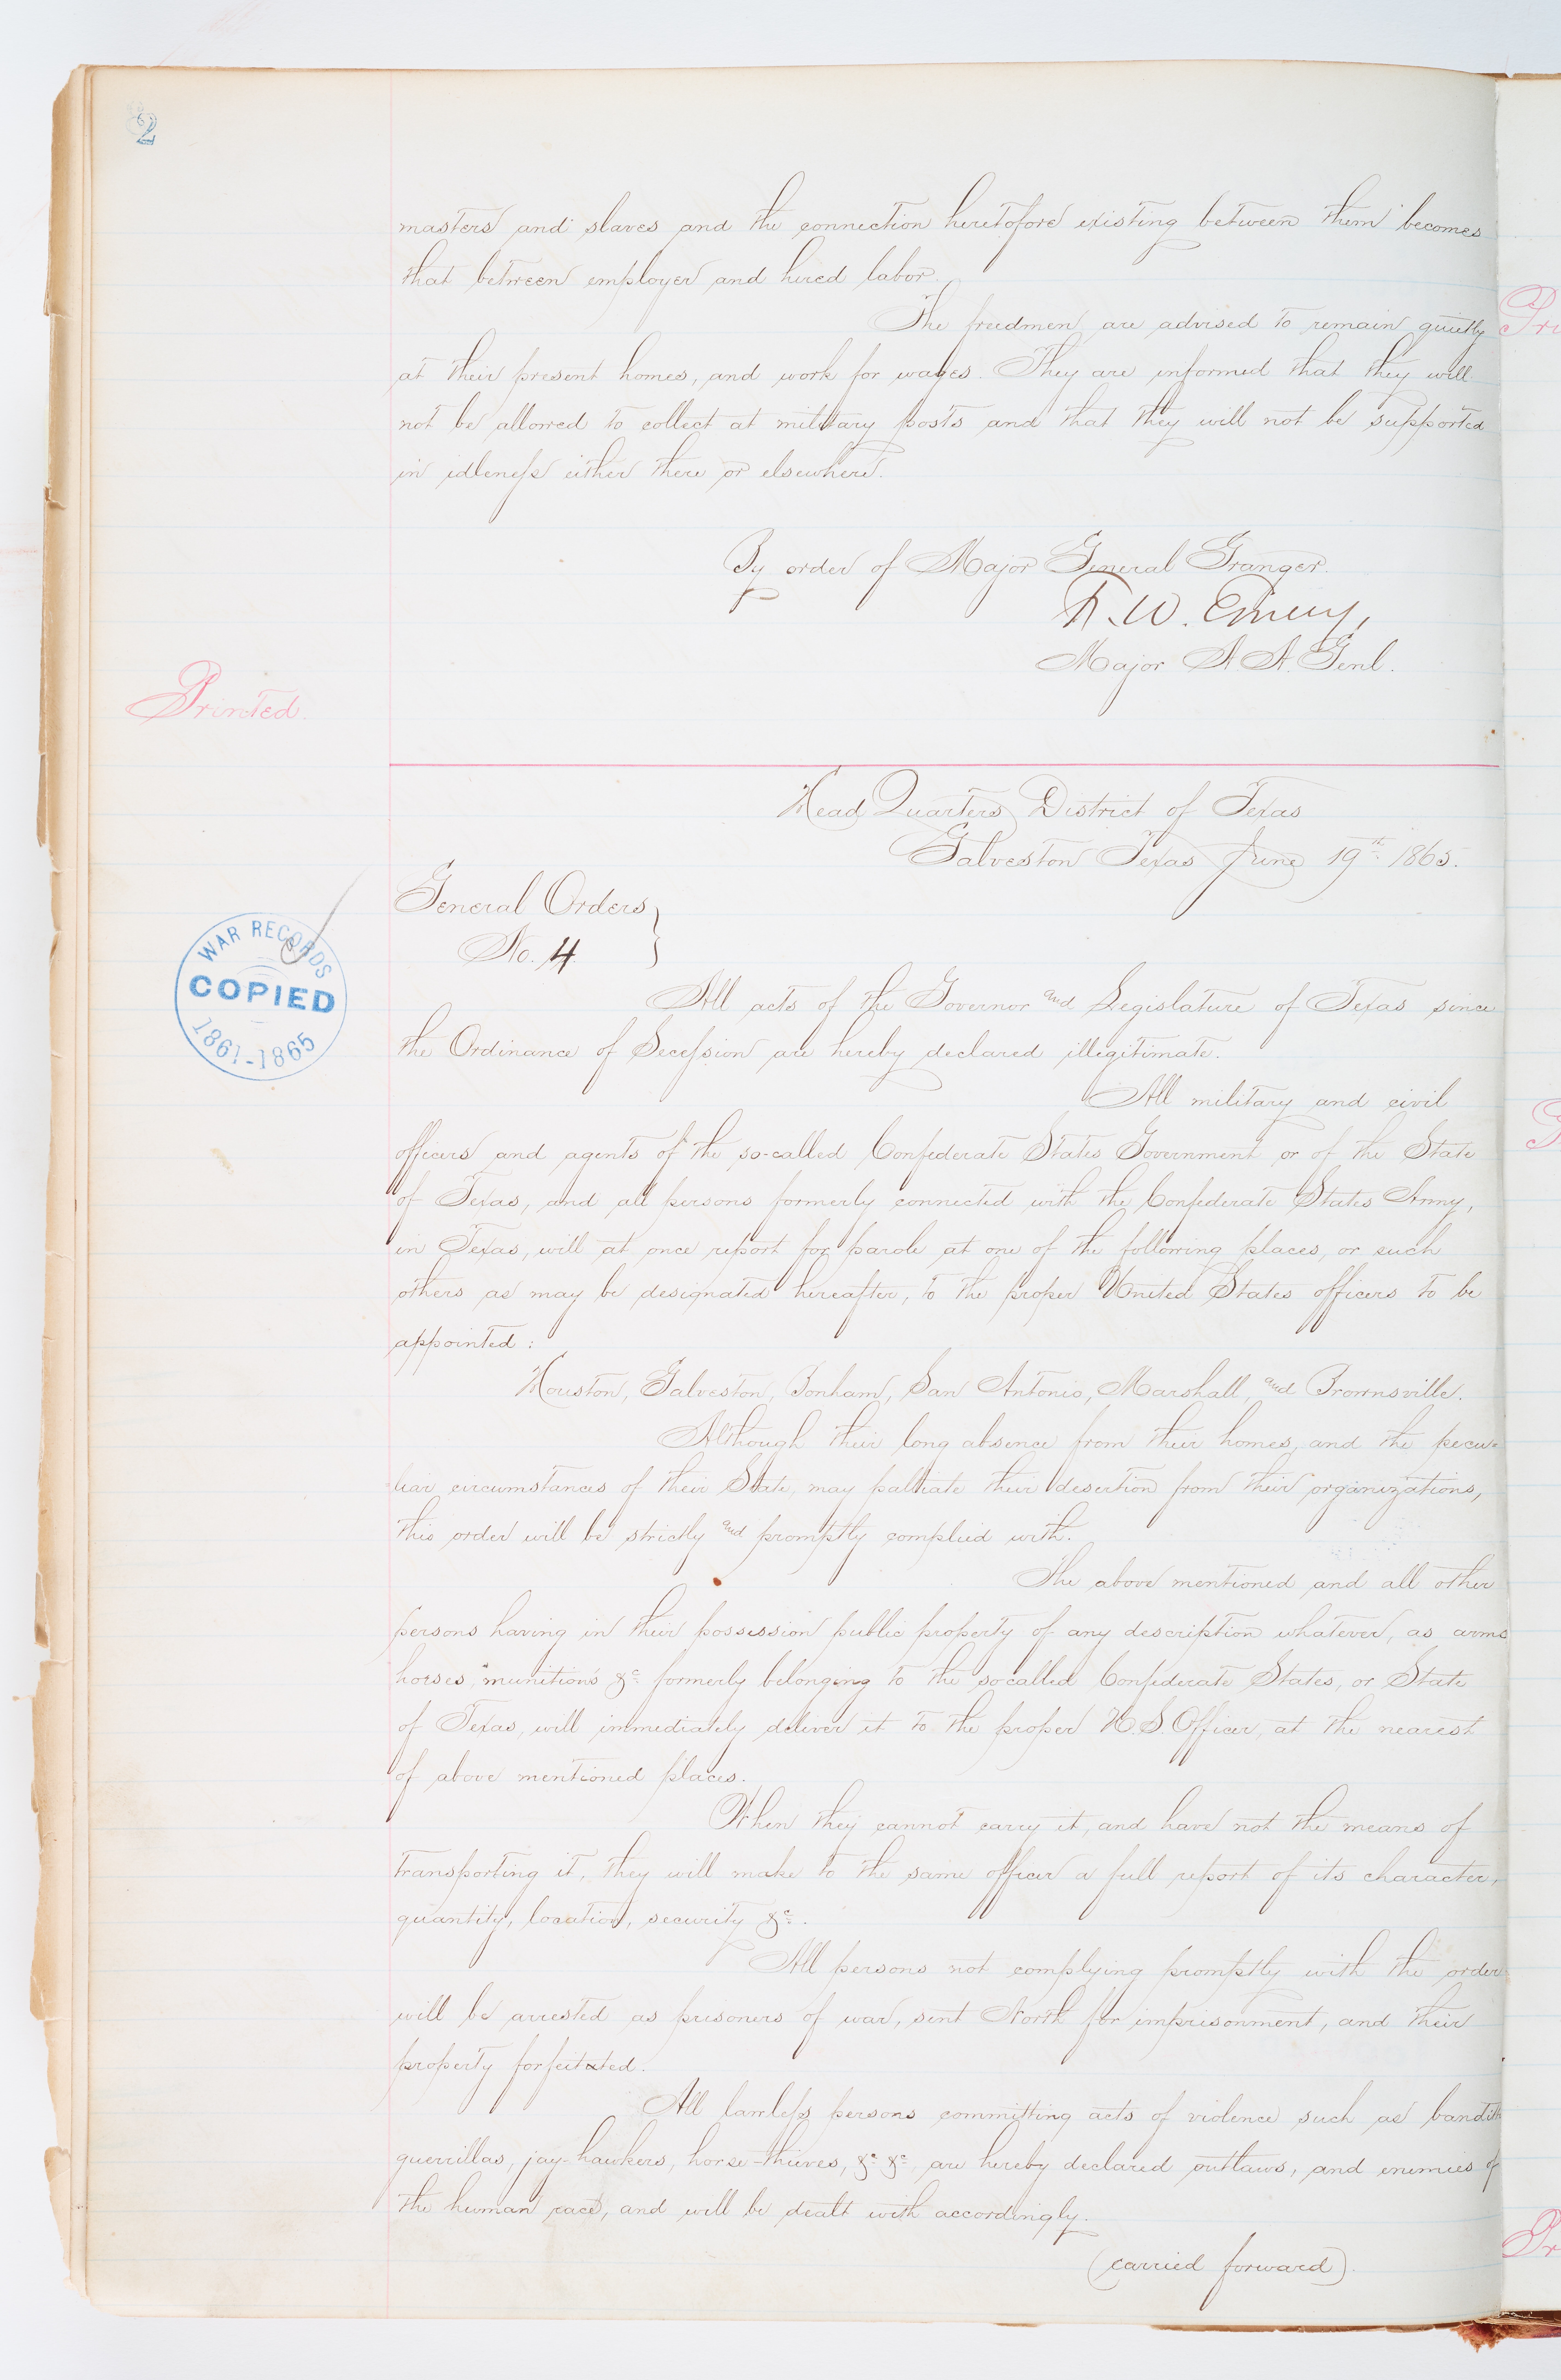 2
masters and slaves and the connection heretofore existing between them becomes
that between employer and hired labor.
The freedmen are advised to remain quietly
at their present homes, and work for wages. They are informed that they will
not be allowed to collect at military posts and that they will not be supported
in idleness either there or elsewhere.
By order of Major General Granger.
F. W. Emery,
Major A. A. Genl.
Printed.
Head Quarters District of Texas
Galveston Texas June 19th 1865.
General Orders
No. 4
WAR RECORDS
COPIED
1861-1865
All acts of the Governor and Legislature of Texas since
the Ordinance of Secession are hereby declared illegitimate.
All military and civil
officers and agents of the so-called Confederate States Government or of the State
of Texas, and all persons formerly connected with the Confederate States Army,
in Texas, will at once report for parole at one of the following places, or such
others as may be designated hereafter, to the proper United States officers to be
appointed:
Houston, Galveston, Bonham, San Antonio, Marshall, and Brownsville.
Although their long absence from their homes, and the pecu=
liar circumstances of their State, may palliate their desertion from their organizations,
this order will be strictly and promptly complied with.
The above mentioned and all other
persons having in their possession public property of any description whatever, as arms
horses, munitions &c formerly belonging to the so called Confederate States, or State
of Texas, will immediately deliver it to the proper U.S. Officer, at the nearest
of above mentioned places.
When they cannot carry it, and have not the means of
transporting it, they will make to the same officer a full report of its character,
quantity, location, security &c.
All persons not complying promptly with the order
will be arrested as prisoners of war, sent North for imprisonment, and their
property forfeitated.
All lawless persons committing acts of violence such as banditti
guerrillas, jay-hawkers, horse-thieves, &c &c, are hereby declared outlaws, and enemies of
the human race, and will be dealt with accordingly.
(carried forward).
Pri
G
Pr